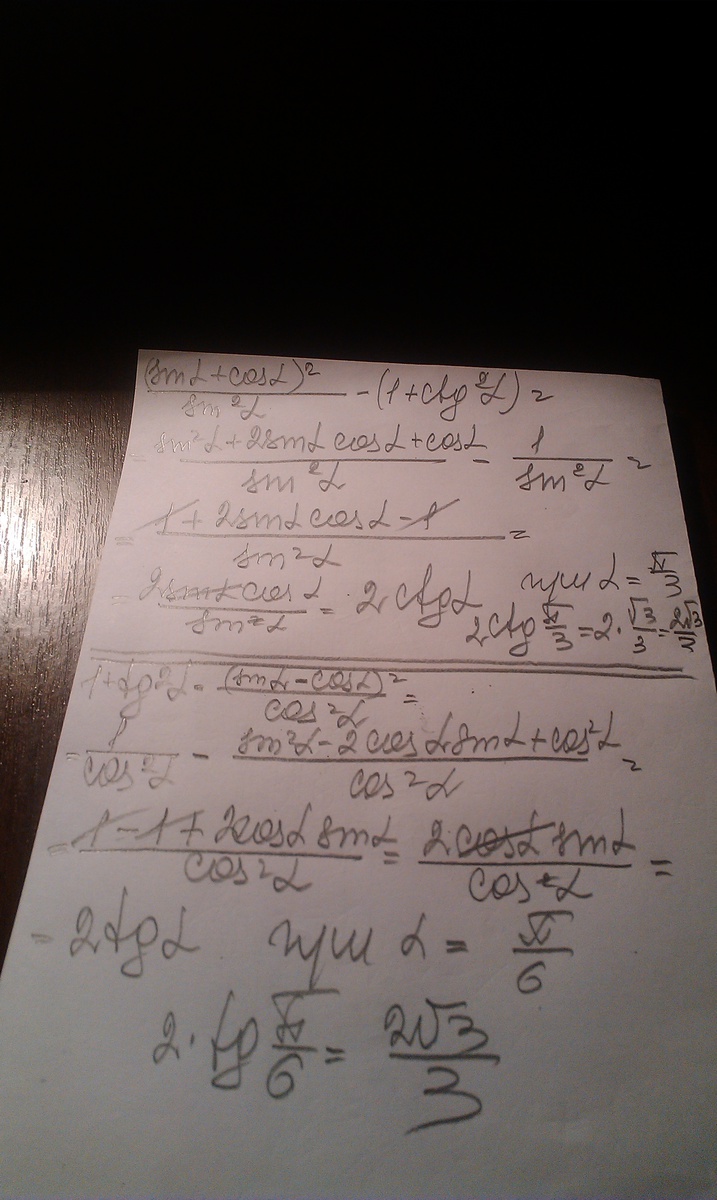 (sinα + cosα)² / sin²α − (1 + ctg²α) =
= sin²α + 2sinα cosα + cosα / sin²α − 1 / sin²α =
= 1 + 2sinα cosα − 1 / sin²α =
= 2sinα cosα / sin²α = 2ctgα при α = π/3
2ctg π/3 = 2 · √3/3 = 2√3/3
1 + tg²α − (sinα − cosα)² / cos²α =
= 1 / cos²α − sin²α − 2cosα sinα + cos²α / cos²α =
= 1 − 1 + 2cosα sinα / cos²α = 2cosα sinα / cos²α =
= 2tgα при α = π/6
2 · tg π/6 = 2√3/3